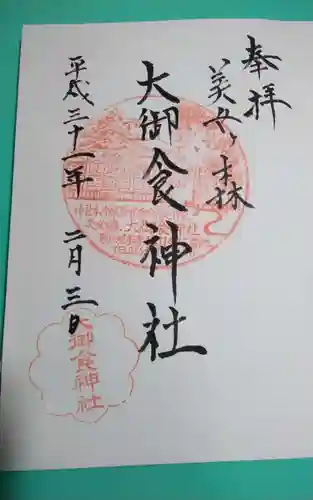 奉拝
美女ヶ森
大御食神社
平成三十一年 二月 三日
大御食神社